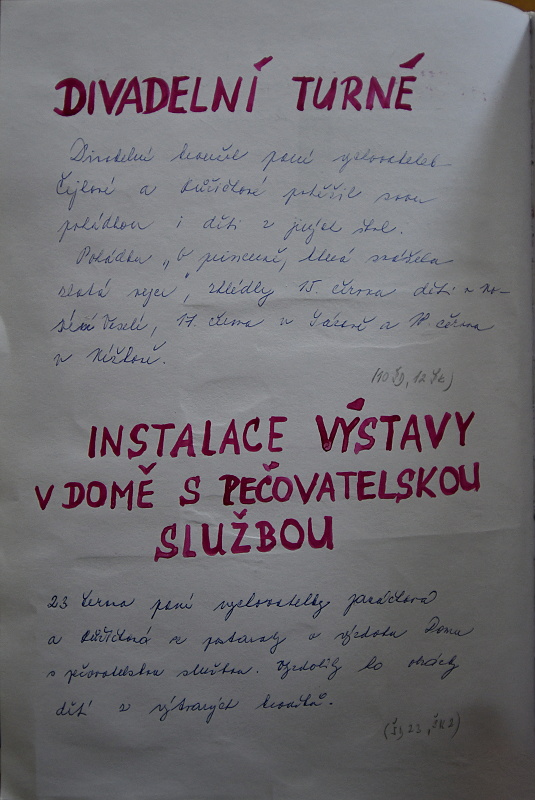 DIVADELNÍ TURNÉ
Divadelní kroužek paní vychovatelek
Čejkové a Růžičkové potěšil svou
pohádkou i děti z jiných škol.
Pohádku „O princezně, která snášela
zlatá vejce", zhlédly 15. června děti v No-
Veselí, 17. června v Sázavě a 18. června
v Nížkově.
INSTALACE VÝSTAVY
V DOMĚ S PEČOVATELSKOU
SLUŽBOU
23 června paní vychovatelky
a Růžičková se postaraly o výzdobu Domu
s pečovatelskou službou. Vyzdobily ho obrázky
dětí z výtvarných kroužků.